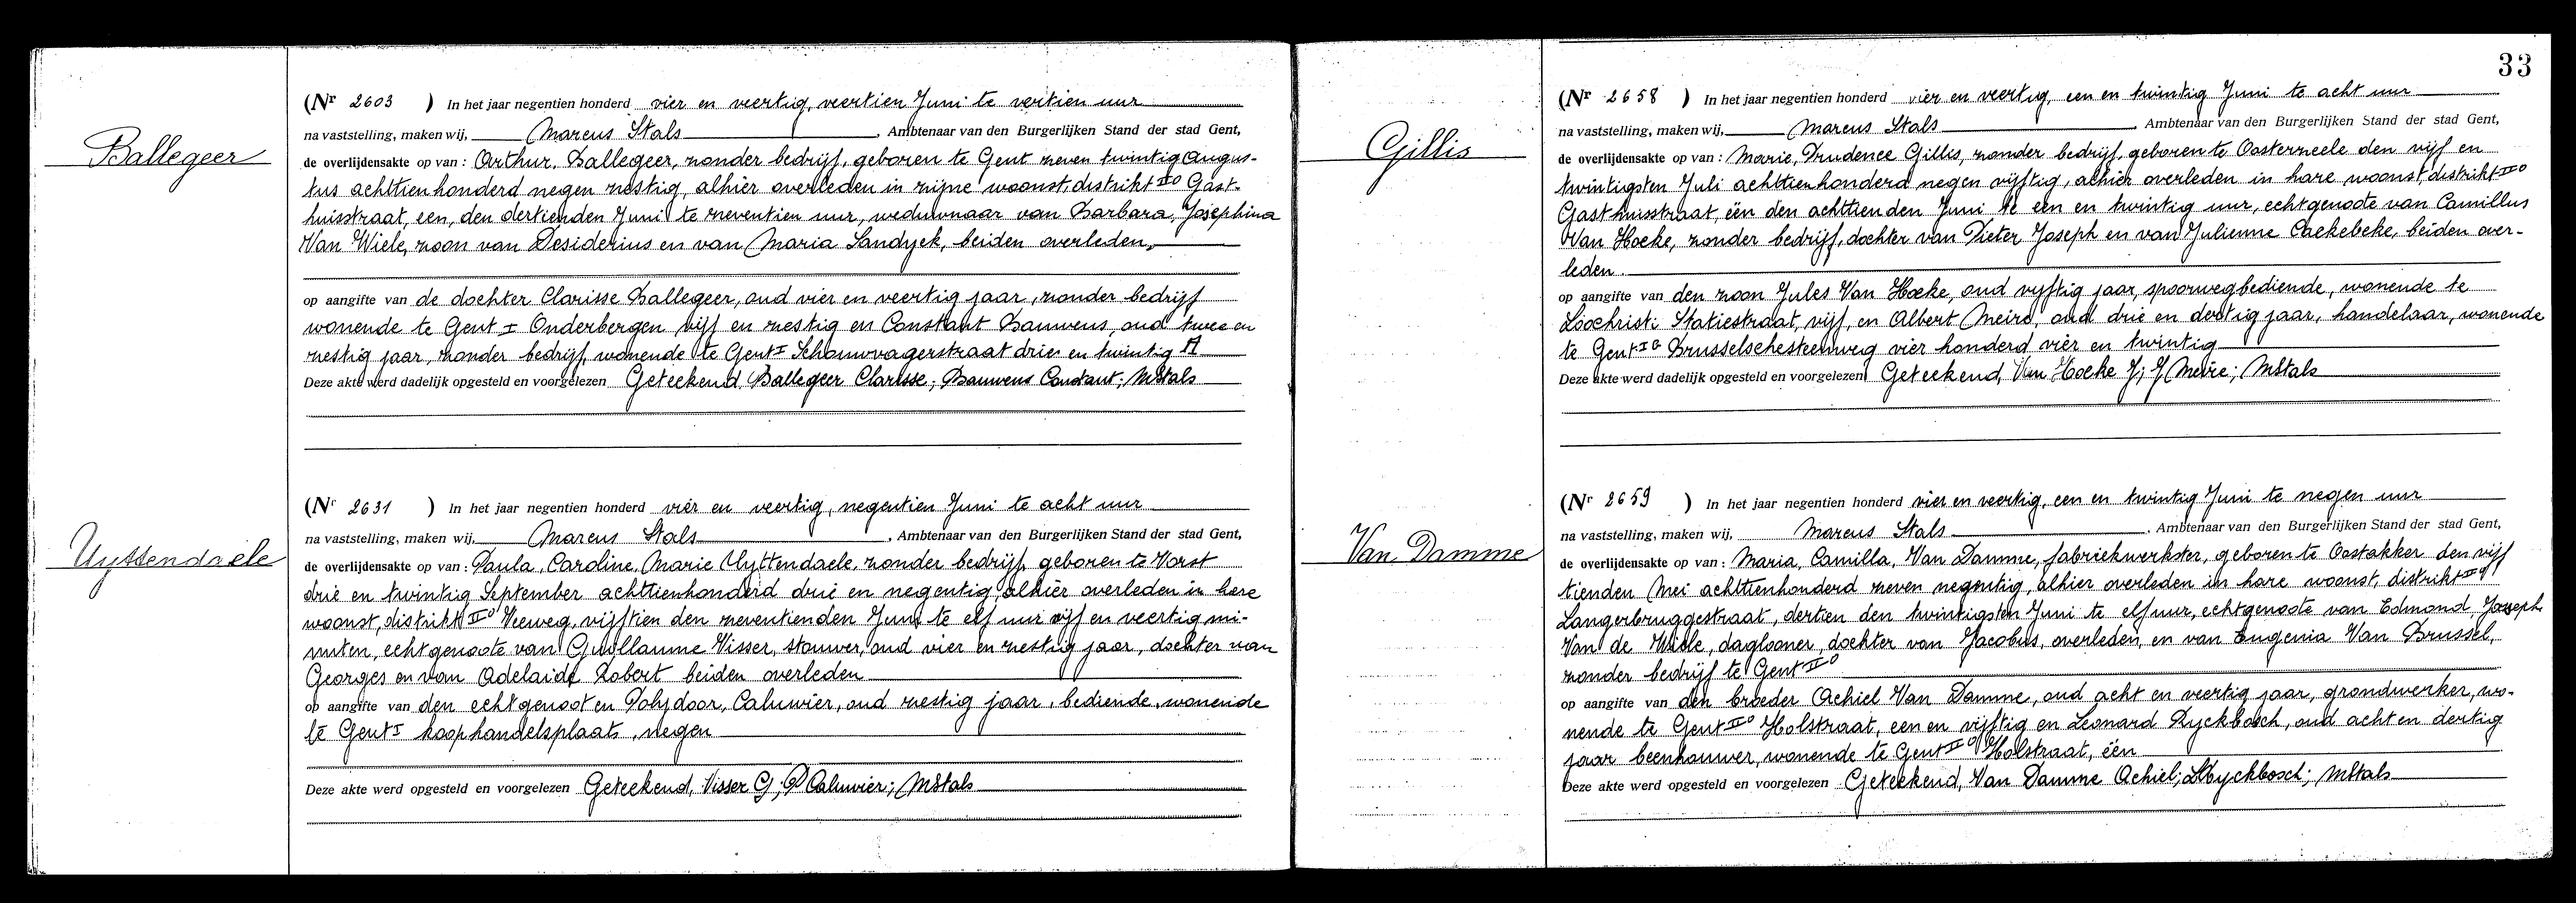 Ballegeer
(Nr 2603 ) In het jaar negentien honderd vier en veertig, veertien Juni te veertien uur
na vaststelling, maken wij, Marcus Stals, Ambtenaar van den Burgerlijken Stand der stad Gent,
de overlijdensakte op van : Arthur, Ballegeer, zonder bedrijf, geboren te Gent zeven twintig Augus-
tus achttienhonderd negen zestig, alhier overleden in zijne woonst, distrikt IIO Gast-
huisstraat, een, den dertienden Juni te zeventien uur, weduwnaar van Barbara, Josephina
Van Wiele, zoon van Desiderius en van Maria Sandyck, beiden overleden,
op aangifte van de dochter Clarisse Ballegeer, oud vier en veertig jaar, zonder bedrijf
wonende te Gent I Onderbergen vijf en zestig en Constant Bauwens, oud twee en
zestig jaar, zonder bedrijf, wonende te Gent I Schouwvagerstraat drie en twintig A
Deze akte werd dadelijk opgesteld en voorgelezen Geteekend, Ballegeer Clarisse; Bauwens Constant; MStals
Uyttendaele
(Nr 2631 ) In het jaar negentien honderd vier en veertig, negentien Juni te acht uur
na vaststelling, maken wij, Marcus Stals, Ambtenaar van den Burgerlijken Stand der stad Gent,
de overlijdensakte op van : Paula, Caroline, Marie Uyttendaele, zonder bedrijf, geboren te Vorst
drie en twintig September achttienhonderd drie en negentig, alhier overleden in hare
woonst, distrikt IIO Veeweg, vijftien den zeventienden Juni te elf uur vijf en veertig mi-
nuten, echtgenoote van Guillaume Visser, stouwer, oud vier en zestig jaar, dochter van
Georges en van Adelaide Robert beiden overleden
op aangifte van den echtgenoot en Polydoor, Caluwier, oud zestig jaar, bediende, wonende
te Gent I koophandelsplaats, negen
Deze akte werd opgesteld en voorgelezen Geteekend, Visser G; P Caluwier; MStals
33
Gillis
(Nr 2658 ) In het jaar negentien honderd vier en veertig, een en twintig Juni te acht uur
na vaststelling, maken wij, Marcus Stals, Ambtenaar van den Burgerlijken Stand der stad Gent,
de overlijdensakte op van : Marie, Prudence Gillis, zonder bedrijf, geboren te Oosterzeele den vijf en
twintigsten Juli achttienhonderd negen vijftig, alhier overleden in hare woonst, distrikt IIO
Gasthuisstraat, één den achttienden Juni te een en twintig uur, echtgenoote van Camillus
Van Hoeke, zonder bedrijf, dochter van Pieter Joseph en van Julienne Caekebeke, beiden over-
leden.
op aangifte van den zoon Jules Van Hoeke, oud vijftig jaar, spoorwegbediende, wonende te
Loochristi Statiestraat, vijf, en Albert Meire, oud drie en dertig jaar, handelaar, wonende
te Gent Brusselschesteenweg vier honderd vier en twintig
Deze akte werd dadelijk opgesteld en voorgelezen Geteekend, Van Hoeke J; J Meire; MStals
Van Damme
(Nr 2659 ) In het jaar negentien honderd vier en veertig, een en twintig Juni te negen uur
na vaststelling, maken wij, Marcus Stals, Ambtenaar van den Burgerlijken Stand der stad Gent,
de overlijdensakte op van : Maria, Camilla, Van Damme, fabriekwerkster, geboren te Oostakker den vijf
tienden Mei achttienhonderd zeven negentig, alhier overleden in hare woonst, distrikt IIO
Langerbruggestraat, dertien den twintigsten Juni te elf uur, echtgenoote van Edmond, Joseph
Van de Wiele, daglooner, dochter van Jacobus, overleden, en van Eugenia Van Brussel,
zonder bedrijf te Gent IIO
op aangifte van den broeder Achiel Van Damme, oud acht en veertig jaar, grondwerker, wo-
nende te Gent IIO Holstraat, een en vijftig en Leonard Dyckbosch, oud acht en dertig
jaar beenhouwer, wonende te Gent IIO Holstraat, één
Deze akte werd opgesteld en voorgelezen Geteekend, Van Damme Achiel; LDyckbosch; MStals